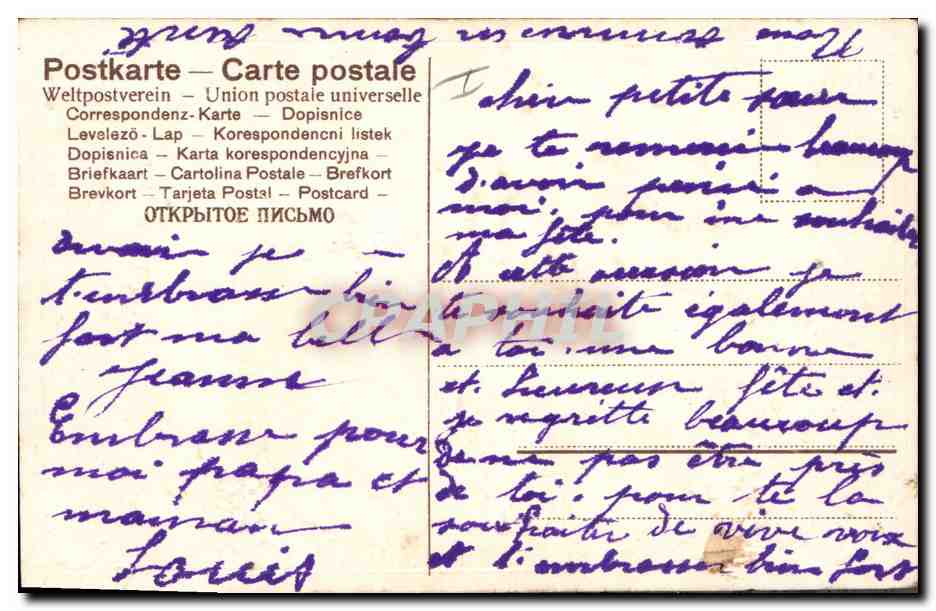 Nous sommes en bonne santé
Postkarte — Carte postale
Weltpostverein — Union postale universelle
Correspondenz-Karte — Dopisnice
Levelező-Lap — Korespondencni listek
Dopisnica — Karta korespondencyjna —
Briefkaart — Cartolina Postale — Brefkort
Brevkort — Tarjeta Postal — Postcard —
ОТКРЫТОЕ ПИСЬМО
I
petite sœur
je te remerci beaucoup
d'avoir pensé a
moi, pour me souhaiter
ma fête.
A cette occasion je
te souhaite également
a toi. une bonne
et heureuse fête et.
je regrette beaucoup
de ne pas être près
de toi. pour te la
souhaiter de vive voix
et t'embrasser bien fort
je
t'embrasse bien
fort ma bell
Jeanne
Embrasse pour
moi papa et
maman
Louis
CPAPHIL